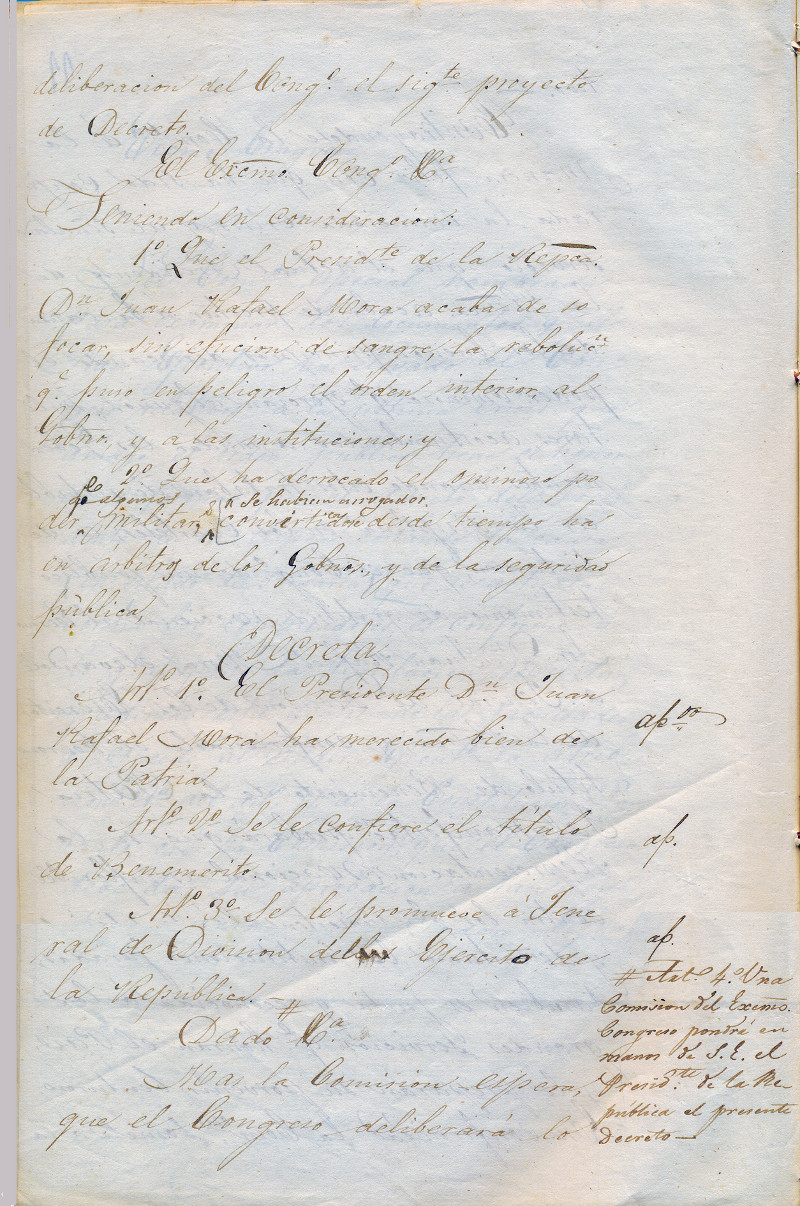 deliberacion del Cong.º el sig.te proyecto
de Decreto.
El Exc̃mo. Cong.º &.a
Teniendo en consideracion:
1.º Que el Presid.te de la Repc̃a.
D.n Juan Rafael Mora acaba de so
focar, sin efucion de sangre, la reboluc.n
q.e puso en peligro el órden interior, al
Gobño, y á las instituciones; y
2.º Que ha derrocado el ominoso po
q.e algunos
se habian arrogado
der militar, convertidos desde tiempo há
en árbitros de los Gobños, y de la seguridád
pùblica,
Decreta.
Art.º 1.º El Presidente D.n Juan
ap.do
Rafael Mora ha merecido bien de
la Patria.
Art.º 2.º Se le confiere el título
ap.
de Benemérito.
Art.º 3.º Se le promueve á Jene
ap.
ral de Division del Ejército de
la República. — #
# Art.º 4.º Una
Comision del Exc̃mo.
Congreso pondrá en
manos de S. E. el
Presid.te de la Re-
pública el presente
decreto —
Dado &.a "
Mas la Comision espera,
que el Congreso deliberará lo